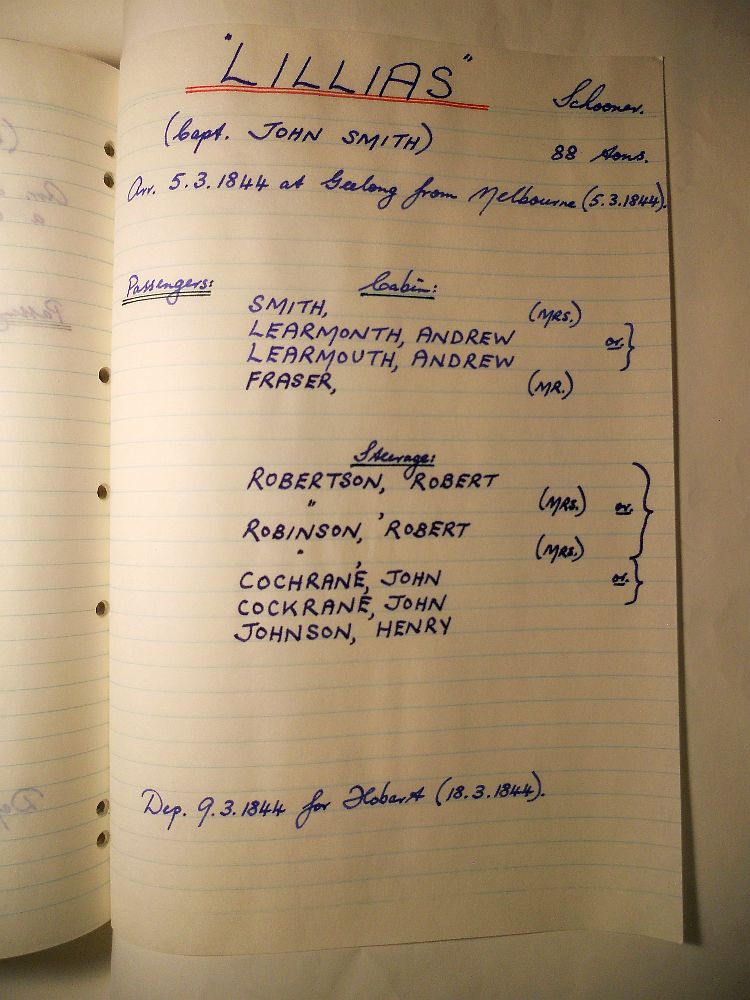 "LILLIAS"
Schooner.
(Capt. JOHN SMITH)
88 tons.
Arr. 5.3.1844 at Geelong from Melbourne (5.3.1844).
Passengers: Cabin:
SMITH, (MRS.)
LEARMONTH, ANDREW or. }
LEARMOUTH, ANDREW
FRASER, (MR.)
Steerage:
ROBERTSON, ROBERT
" , (MRS.) or. }
ROBINSON, ROBERT
" , (MRS.)
COCHRANE, JOHN or. }
COCKRANE, JOHN
JOHNSON, HENRY
Dep. 9.3.1844 for Hobart (18.3.1844).